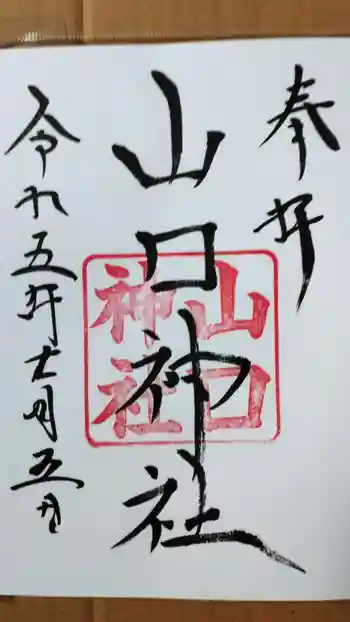 奉拝
山口神社
山口
神社
令和五年
月五日